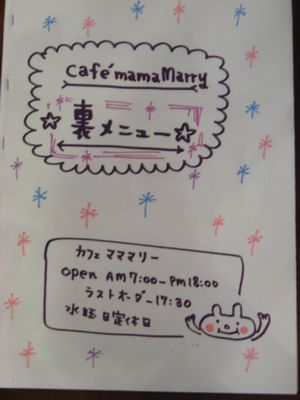 Café mama Marry
☆裏メニュー☆
カフェ ママ マリー
open AM7:00-Pm18:00
ラストオーダー17:30
水曜日定休日